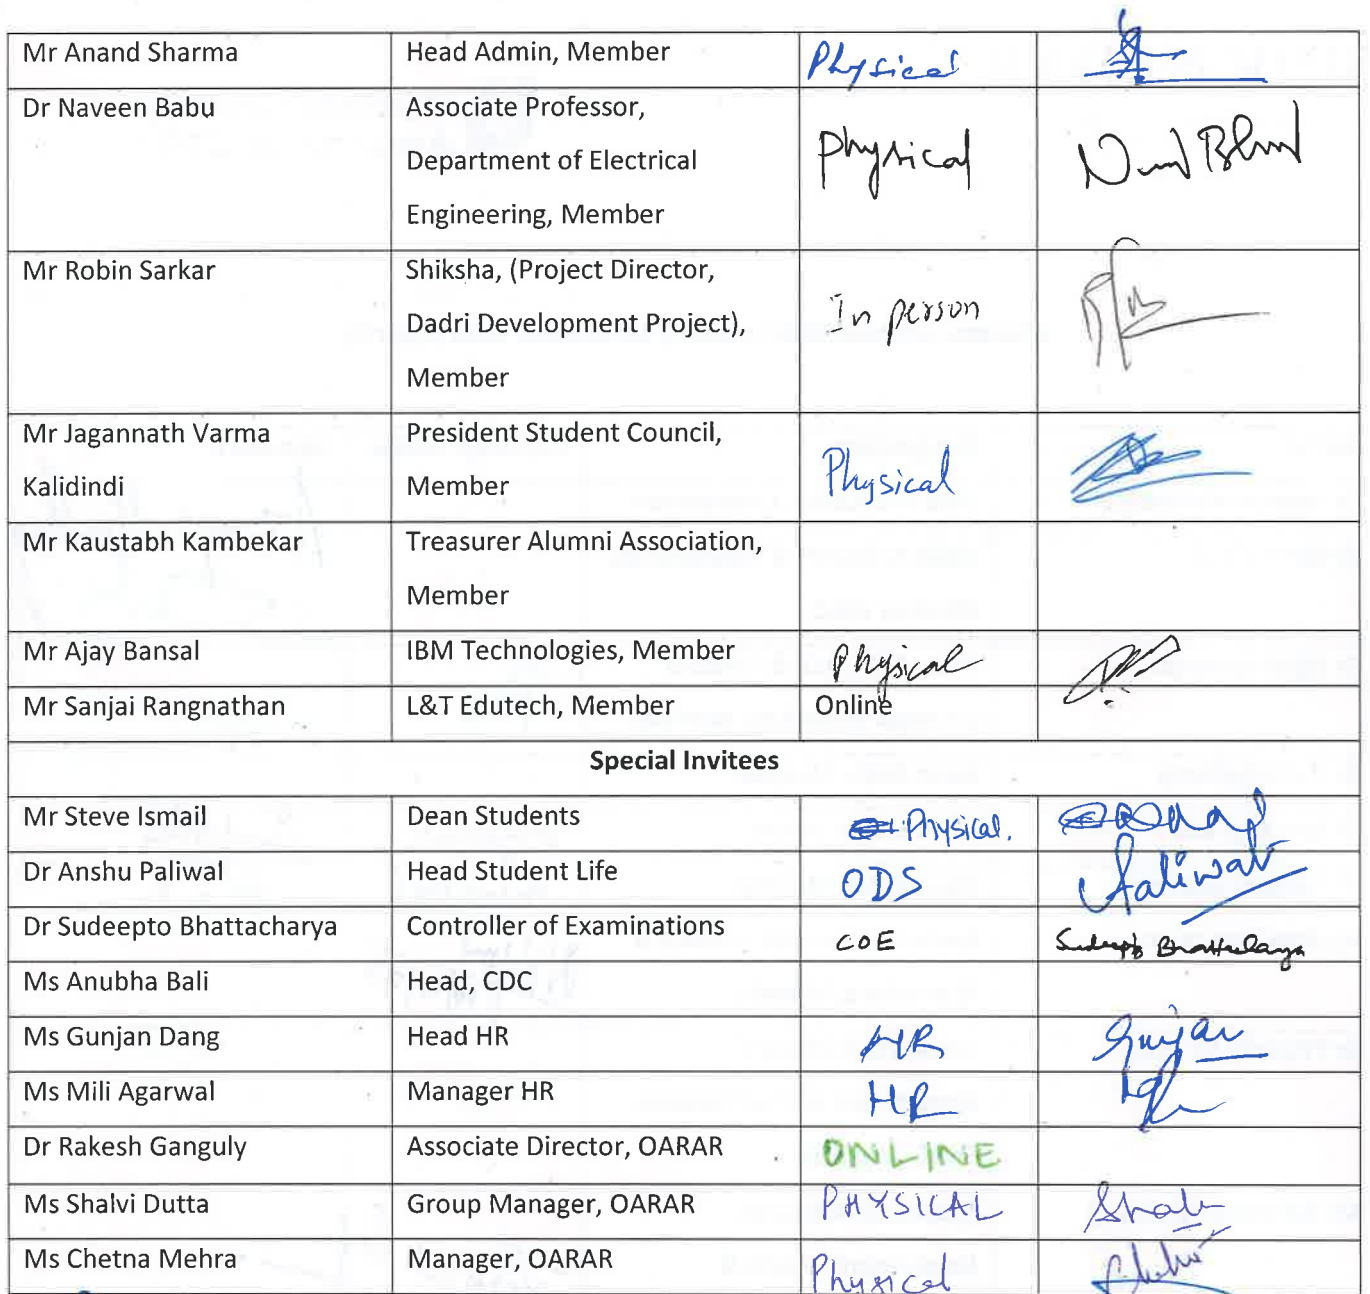 Mr Anand Sharma Head Admin, Member Physical
Dr Naveen Babu Associate Professor,
Department of Electrical Physical
Engineering, Member
Mr Robin Sarkar Shiksha, (Project Director,
Dadri Development Project), In person
Member
Mr Jagannath Varma President Student Council,
Kalidindi Member Physical
Mr Kaustabh Kambekar Treasurer Alumni Association,
Member
Mr Ajay Bansal IBM Technologies, Member Physical
Mr Sanjai Rangnathan L&T Edutech, Member Online
Special Invitees
Mr Steve Ismail Dean Students Physical.
Dr Anshu Paliwal Head Student Life ODS Paliwal
Dr Sudeepto Bhattacharya Controller of Examinations COE Sudeepto Bhattacharya
Ms Anubha Bali Head, CDC
Ms Gunjan Dang Head HR HR Gunjan
Ms Mili Agarwal Manager HR HR
Dr Rakesh Ganguly Associate Director, OARAR ONLINE
Ms Shalvi Dutta Group Manager, OARAR PHYSICAL
Ms Chetna Mehra Manager, OARAR Physical